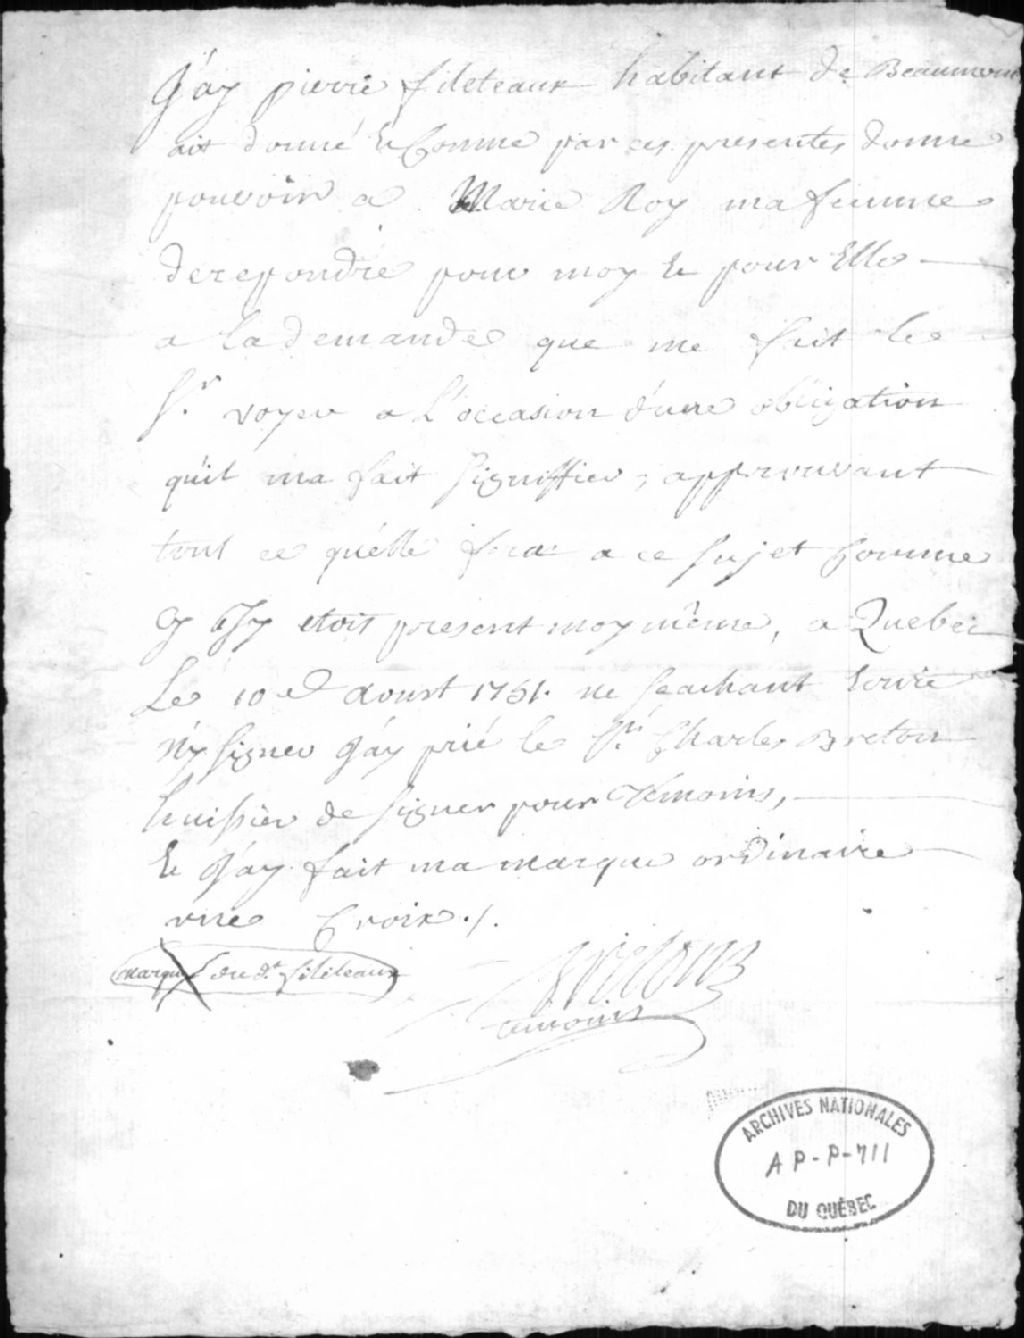 Jay pierre fileteaux habitant de Beaumont
ait donné et Comme par ces presentes donne
pouvoir a Marie Roy ma femme
de repondre pour moy et pour Elle
a la demande que me fait le
Sr. voyer a l'occasion d'une obligation
qu'il ma fait Signiffier, approuvant
tout ce qu'elle fera a ce Sujet Comme
Sy J'y etois present moy même, a Quebec
Le 10e Aoust 1751. ne Scachant Ecrire
N'y Signer J'ay prié le Sr. Charles Breton
huissier de Signer pour Temoins,
Et J'ay fait ma marque ordinaire
une Croix ./.
marque du dt. fileteaux
Breton
temoins
ARCHIVES NATIONALES
AP-P-711
DU QUÉBEC